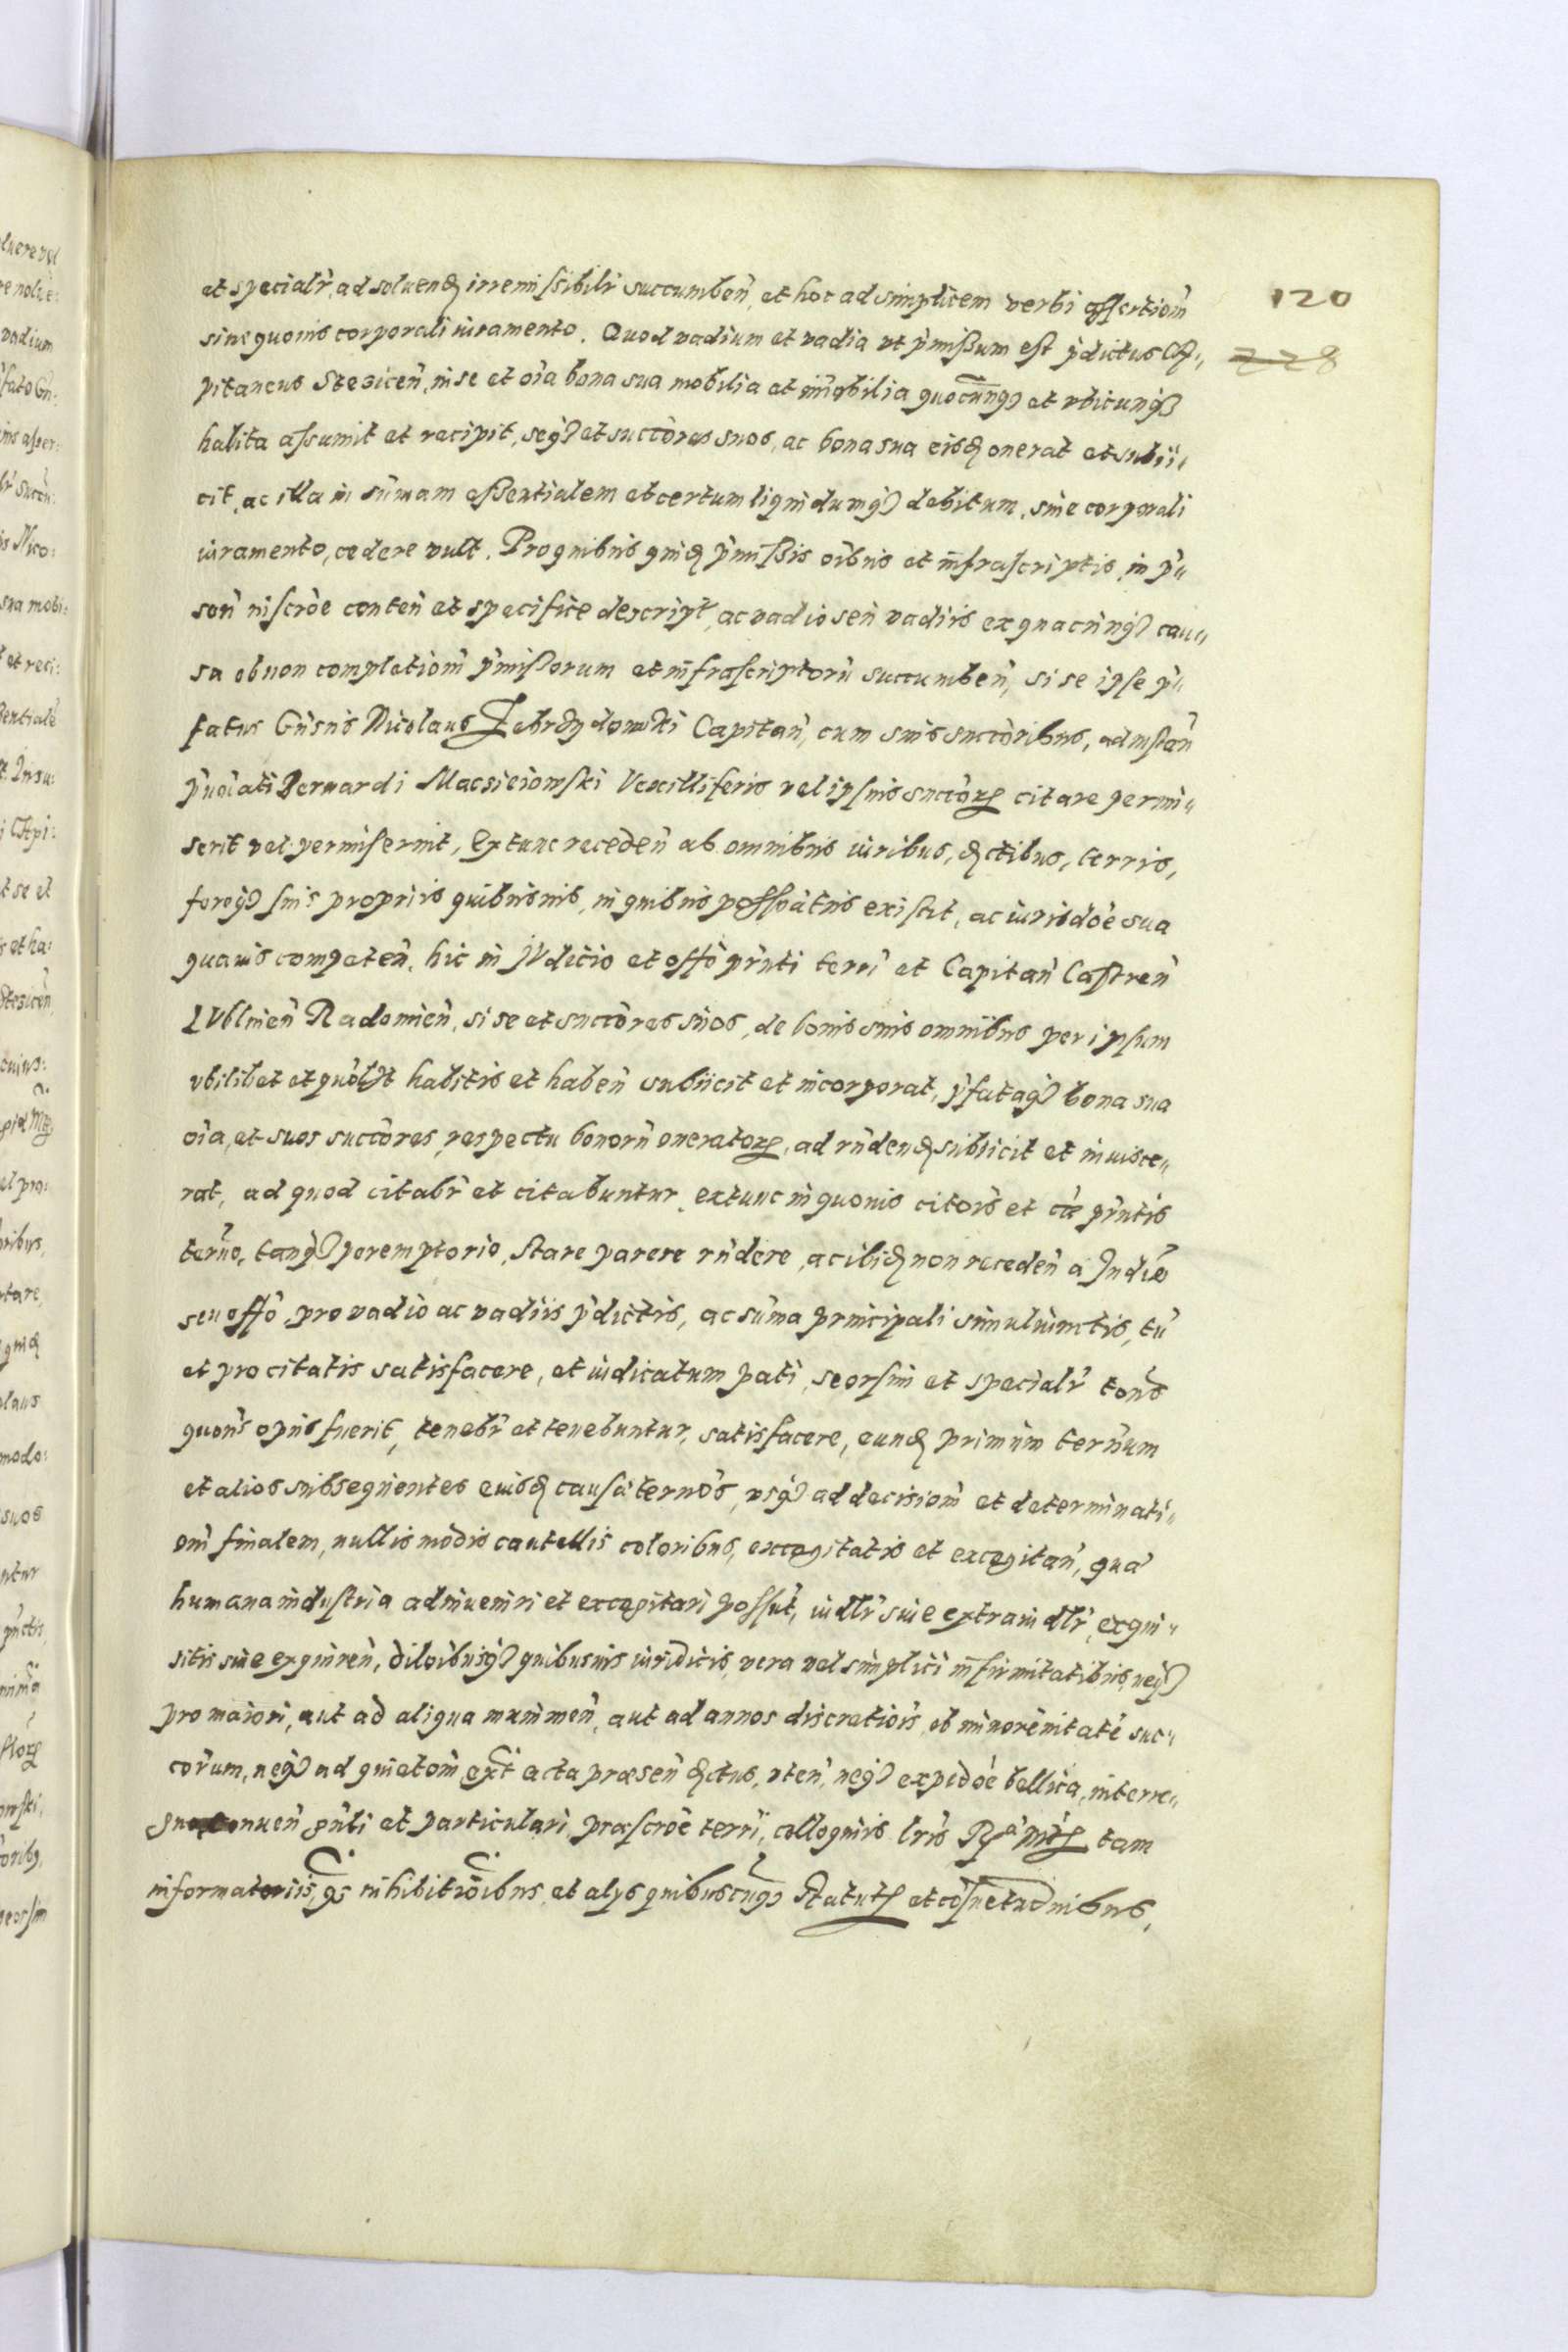 120
228
et specialr̃, ad soluend irremissibilr̃ succumbeñ, et hoc ad simplicem verbi assertioñ
sine quouis corporali iuramento. Quod vadium et vadia vt p̃missum est p̃dictus Ca„
pitaneus Stezicen̄, in se et oĩa bona sua mobilia et im̃obilia quocunq₃ et vbicunq₃
habita assumit et recipit, seq₃ et succores suos, ac bona sua eisd onerat et subii„
cit, ac illa in sum̃am essentialem et certum liquidumq₃ debitum, sine corporali
iuramento, cedere vult. Pro quibus quid p̃missis oĩbus et infrascriptis, in p̃„
soñ inscr̃oe conteñ et specifice descript, ac vadio seu vadiis ex quacunq₃ cau„
sa ob non completioñ p̃missorum et infrascriptorũ succumbeñ, si se ipse p̃„
fatus Gñsus Nicolaus Zebrzydowski Capitañ, cum suis succoribus, ad instañ
p̃noĩati Bernardi Macsieiowski Vexilliferis vel ipsius succor citare permi„
serit vel permiserint, Extunc recedeñ ab omnibus iuribus, dctibus, terris,
foroq₃ suis propriis quibusuis, in quibus possoãtus existit, ac iurisdõe sua
quauis competeñ, hic in Judicio et offo p̃nti terr̃ et Capitañ Castreñ
Lublineñ Radomieñ, si se et succores suos, de bonis suis omnibus per ipsum
vbilibet et quolt habitis et habeñ subiicit et incorporat, p̃fataq₃ bona sua
oĩa, et suos succores, respectu bonorũ onerator, ad rñdend subiicit et inuisce„
rat, ad quod citabr̃ et citabuntur, extunc in quouis citoĩs et cãe p̃ntis
terño, tanq₃ peremptorio, stare parere rñdere, ac ibid non recedeñ a Judiõ
seu offõ, pro vadio ac vadiis p̃dictis, ac sum̃a principali simul iunctis, tũ
et pro citatis satisfacere, et iudicatum pati, seorsim et specialr̃ toñs
quoñs opus fuerit, tenebr̃ et tenebuntur, satisfacere, eund primum terñum
et alios subsequentes eiusd causæ terños, vsq₃ ad decisioñ et determinati„
oñ finalem, nullis modis cautellis coloribus, excogitatis et excogitañ, quæ
humana industria adinueniri et excogitari possut, iudlr̃ siue extraiudlr̃, exqui„
sitis siue exquireñ, diloĩbusq₃ quibusuis iuridicis, vera vel simplici infirmitatibus, neq₃
pro maiori, aut ad aliqua munimeñ, aut ad annos discretiois, ob minoreñitatẽ suc„
corum, neq₃ ad quietoñ ext acta præseñ dctus, vteñ, neq₃ expidõe bellica, interre„
gno conueñ gñli et particulari, præscr̃oe terrĩ, colloquiis lris R. Mts tam
informatoriis, qs inhibitioĩbus, et alys quibuscunq₃ statut et cõsuetudinibus,